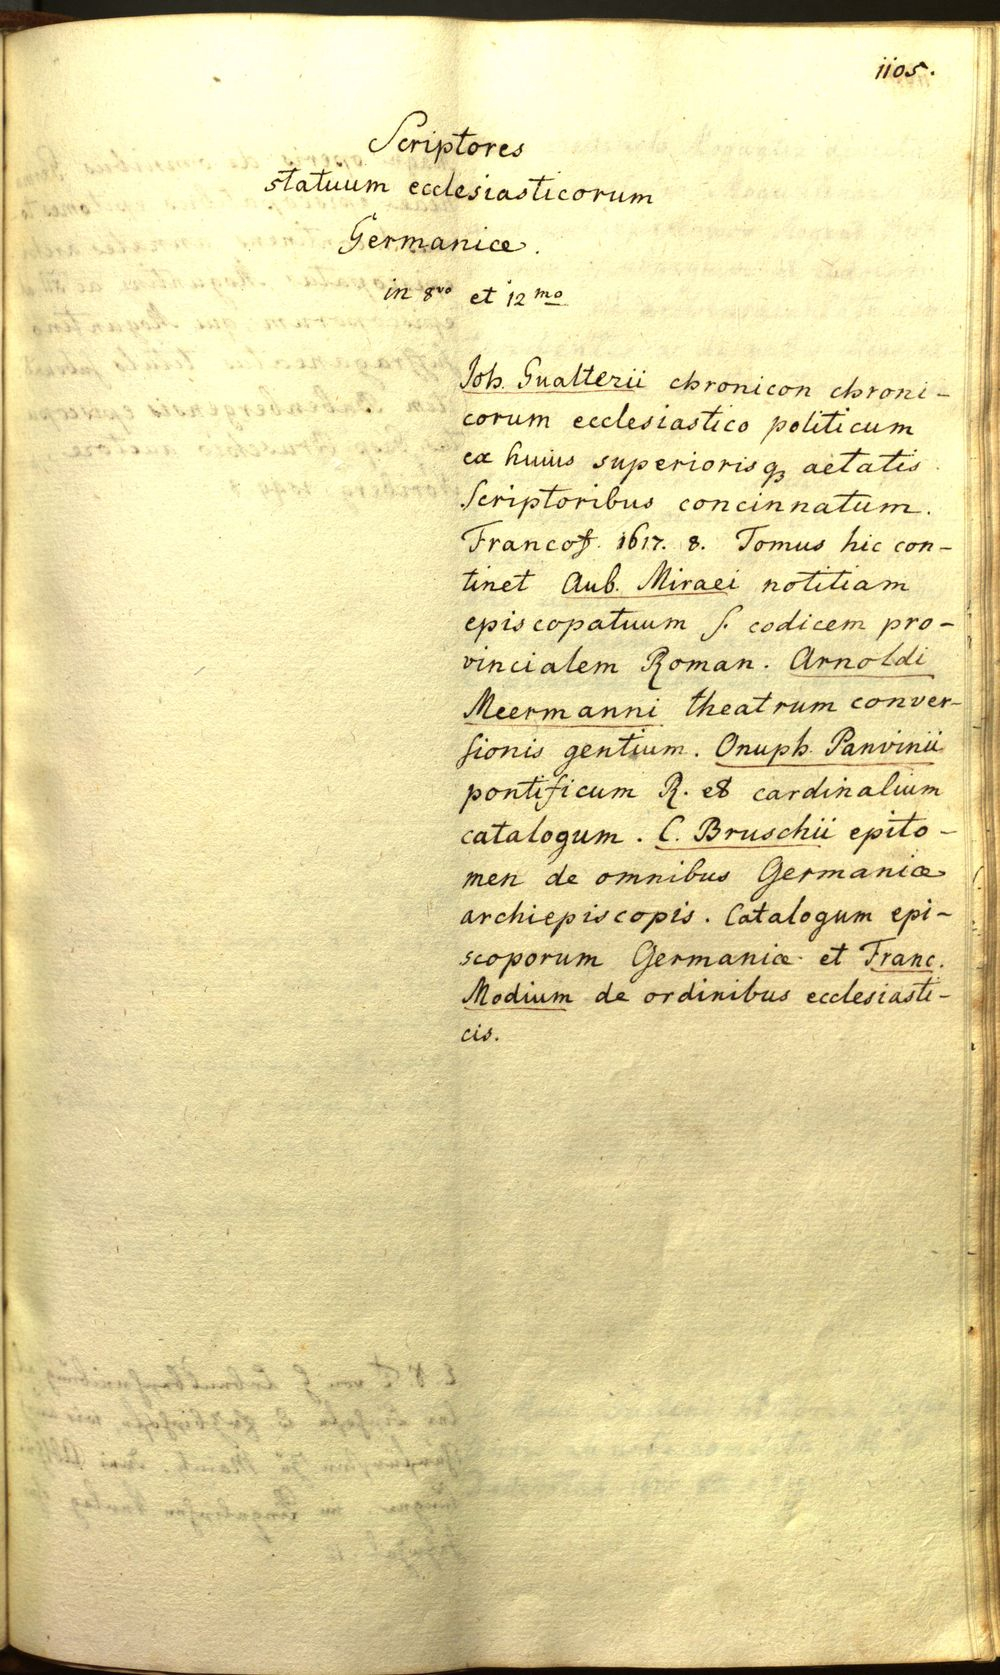 1105.
Scriptores
statuum ecclesiasticorum
Germaniæ.
in 8vo et 12mo
Joh. Gualterii chronicon chroni-
corum ecclesiastico politicum
ex huius superiorisqꝫ aetatis
Scriptoribus concinnatum.
Francof. 1617. 8. Tomus hic con-
tinet Aub. Miraei notitiam
episcopatuum s. codicem pro-
vincialem Roman. Arnoldi
Meermanni theatrum conver-
sionis gentium. Onuph. Panvinii
pontificum R. et cardinalium
catalogum. C. Bruschii epito-
men de omnibus Germaniæ
archiepiscopis. Catalogum epi-
scoporum Germaniæ et Franc.
Modium de ordinibus ecclesiasti-
cis.